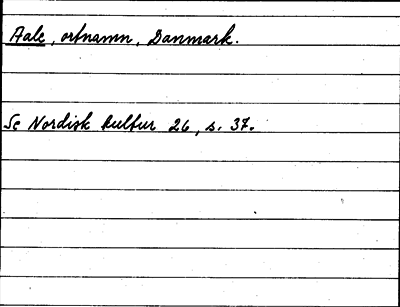 Aale, ortnamn, Danmark.
Se Nordisk kultur 26, s. 37.